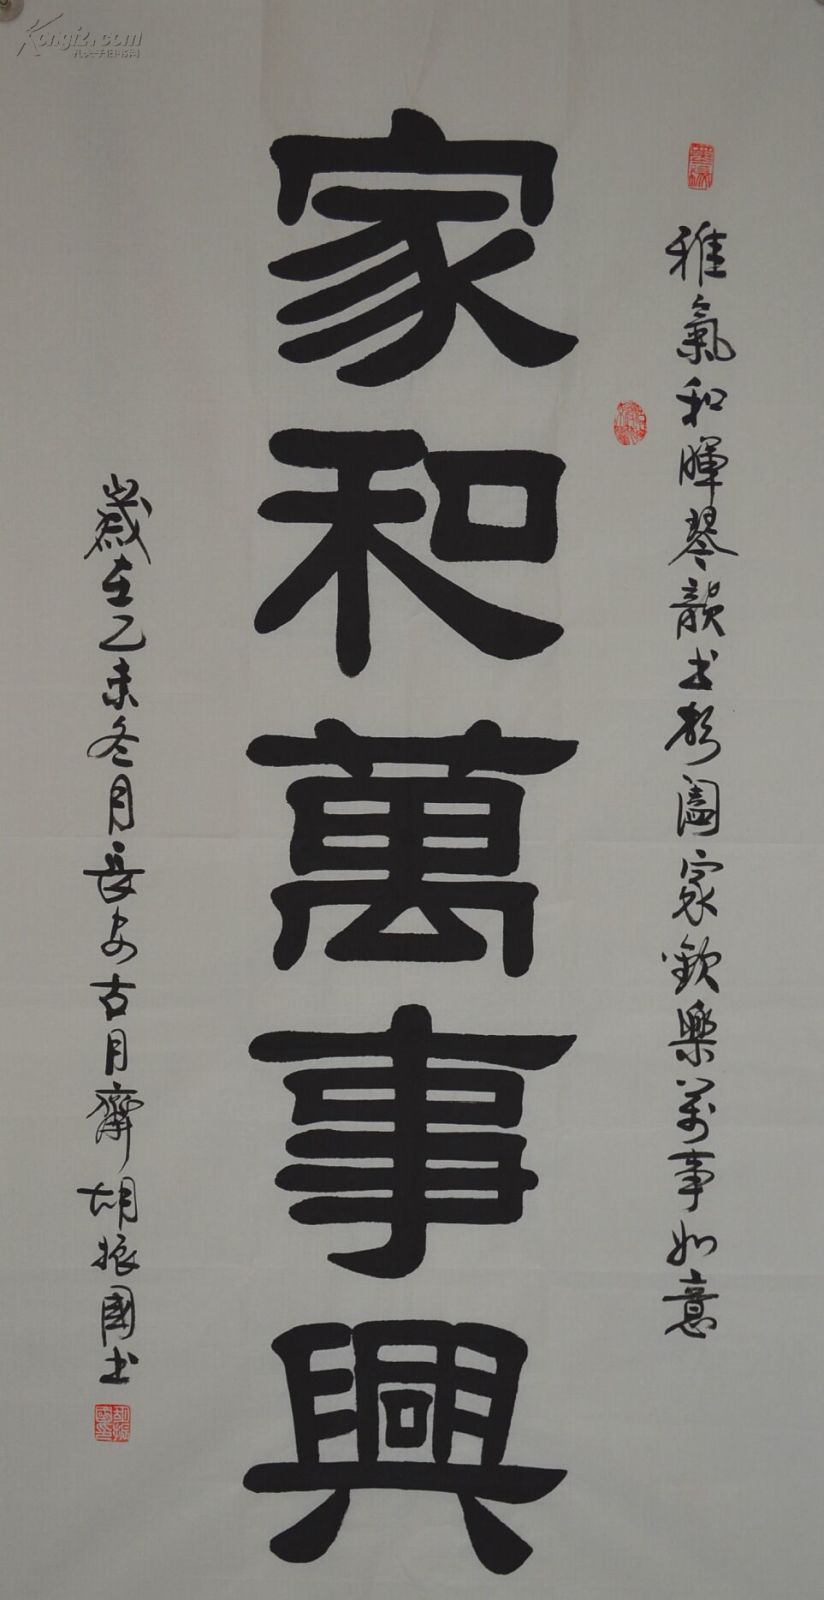 雅氣和暉琴韻书彰阖家歡樂万事如意
家和萬事興
歲在乙未冬月長安古月齋胡振國书
Kongfz.com
孔夫子旧书网